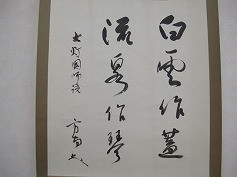 白雲作蓋
流泉作琴
大灯国師語